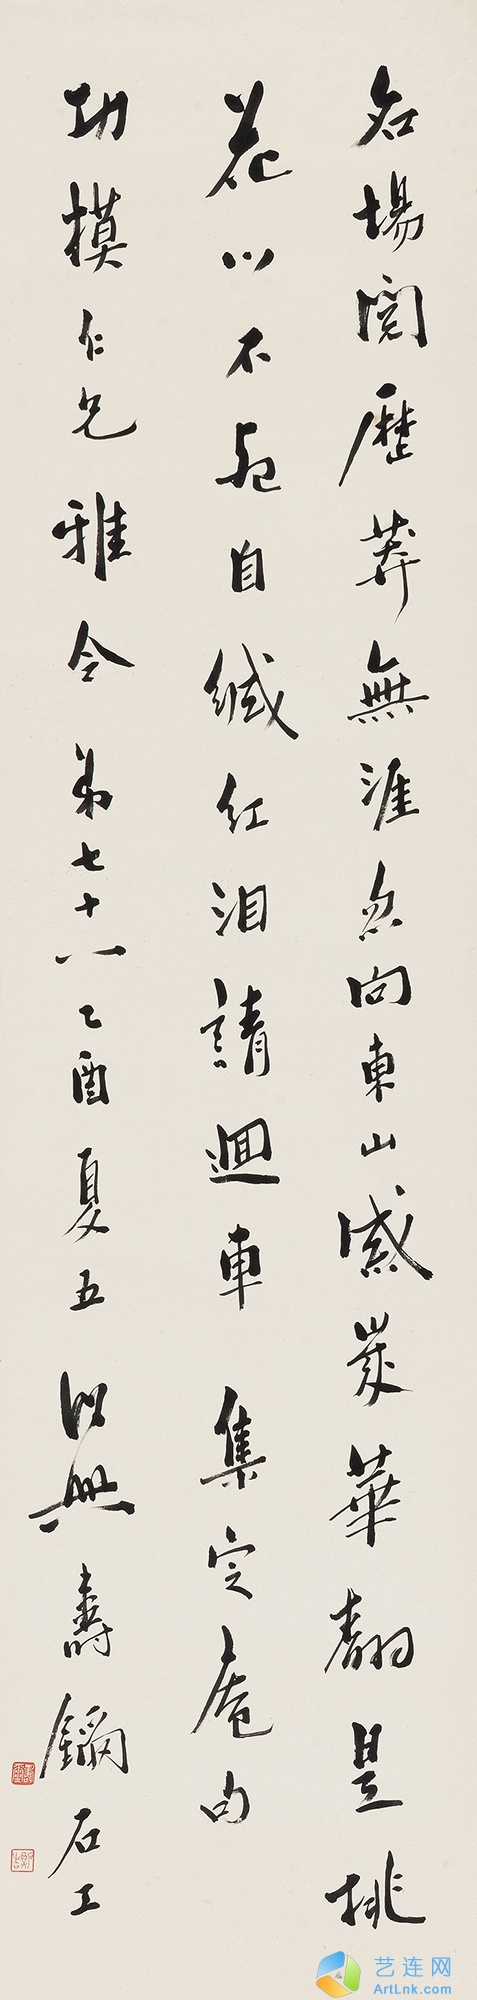 名場閱歷莽無涯忽向東山感歲華翻是桃
花心不死自緘紅淚請迴車 集定庵句
功模仁兄雅令 弟七十八乙酉夏五 壽鑈石工
艺连网
ArtLnk.com